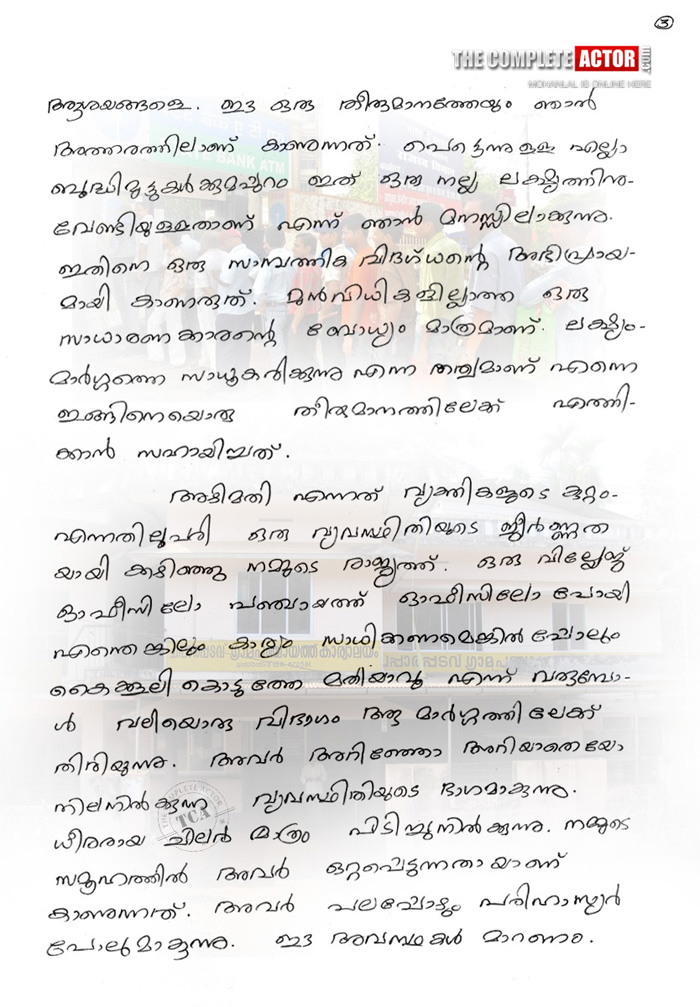 3
THE COMPLETE ACTOR .com
MOHANLAL IS ONLINE HERE
ആശയങ്ങളെ. ഈ ഒരു തീരുമാനത്തേയും ഞാൻ
അത്തരത്തിലാണ് കാണുന്നത്. പെട്ടെന്നുള്ള എല്ലാ
ബുദ്ധിമുട്ടുകൾക്കുമപ്പുറം ഇത് ഒരു നല്ല ലക്ഷ്യത്തിനു-
വേണ്ടിയുള്ളതാണ് എന്ന് ഞാൻ മനസ്സിലാക്കുന്നു.
ഇതിനെ ഒരു സാമ്പത്തിക വിദഗ്ധന്റെ അഭിപ്രായ-
മായി കാണരുത്. മുൻവിധികളില്ലാത്ത ഒരു
സാധാരണക്കാരന്റെ ബോധ്യം മാത്രമാണ്. ലക്ഷ്യം-
മാർഗ്ഗത്തെ സാധൂകരിക്കുന്നു എന്ന തത്ത്വമാണ് എന്നെ
ഇങ്ങിനെയൊരു തീരുമാനത്തിലേക്ക് എത്തി-
ക്കാൻ സഹായിച്ചത്.
അഴിമതി എന്നത് വ്യക്തികളുടെ കുറ്റം-
എന്നതിലുപരി ഒരു വ്യവസ്ഥിതിയുടെ ജീർണ്ണത
യായി കഴിഞ്ഞു നമ്മുടെ രാജ്യത്ത്. ഒരു വില്ലേജ്
ഓഫീസിലോ പഞ്ചായത്ത് ഓഫീസിലോ പോയി
എന്തെങ്കിലും കാര്യം സാധിക്കണമെങ്കിൽപ്പോലും
കൈക്കൂലി കൊടുത്തേ മതിയാവൂ എന്ന് വരുമ്പോ-
ൾ വലിയൊരു വിഭാഗം ആ മാർഗ്ഗത്തിലേക്ക്
തിരിയുന്നു. അവർ അറിഞ്ഞോ അറിയാതെയോ
നിലനിൽക്കുന്ന വ്യവസ്ഥിതിയുടെ ഭാഗമാകുന്നു.
ധീരരായ ചിലർ മാത്രം പിടിച്ചുനിൽക്കുന്നു. നമ്മുടെ
സമൂഹത്തിൽ അവർ ഒറ്റപ്പെടുന്നതായാണ്
കാണുന്നത്. അവർ പലപ്പോഴും പരിഹാസ്യർ
പോലുമാകുന്നു. ഈ അവസ്ഥകൾ മാറണം.
THE COMPLETE ACTOR
TCA